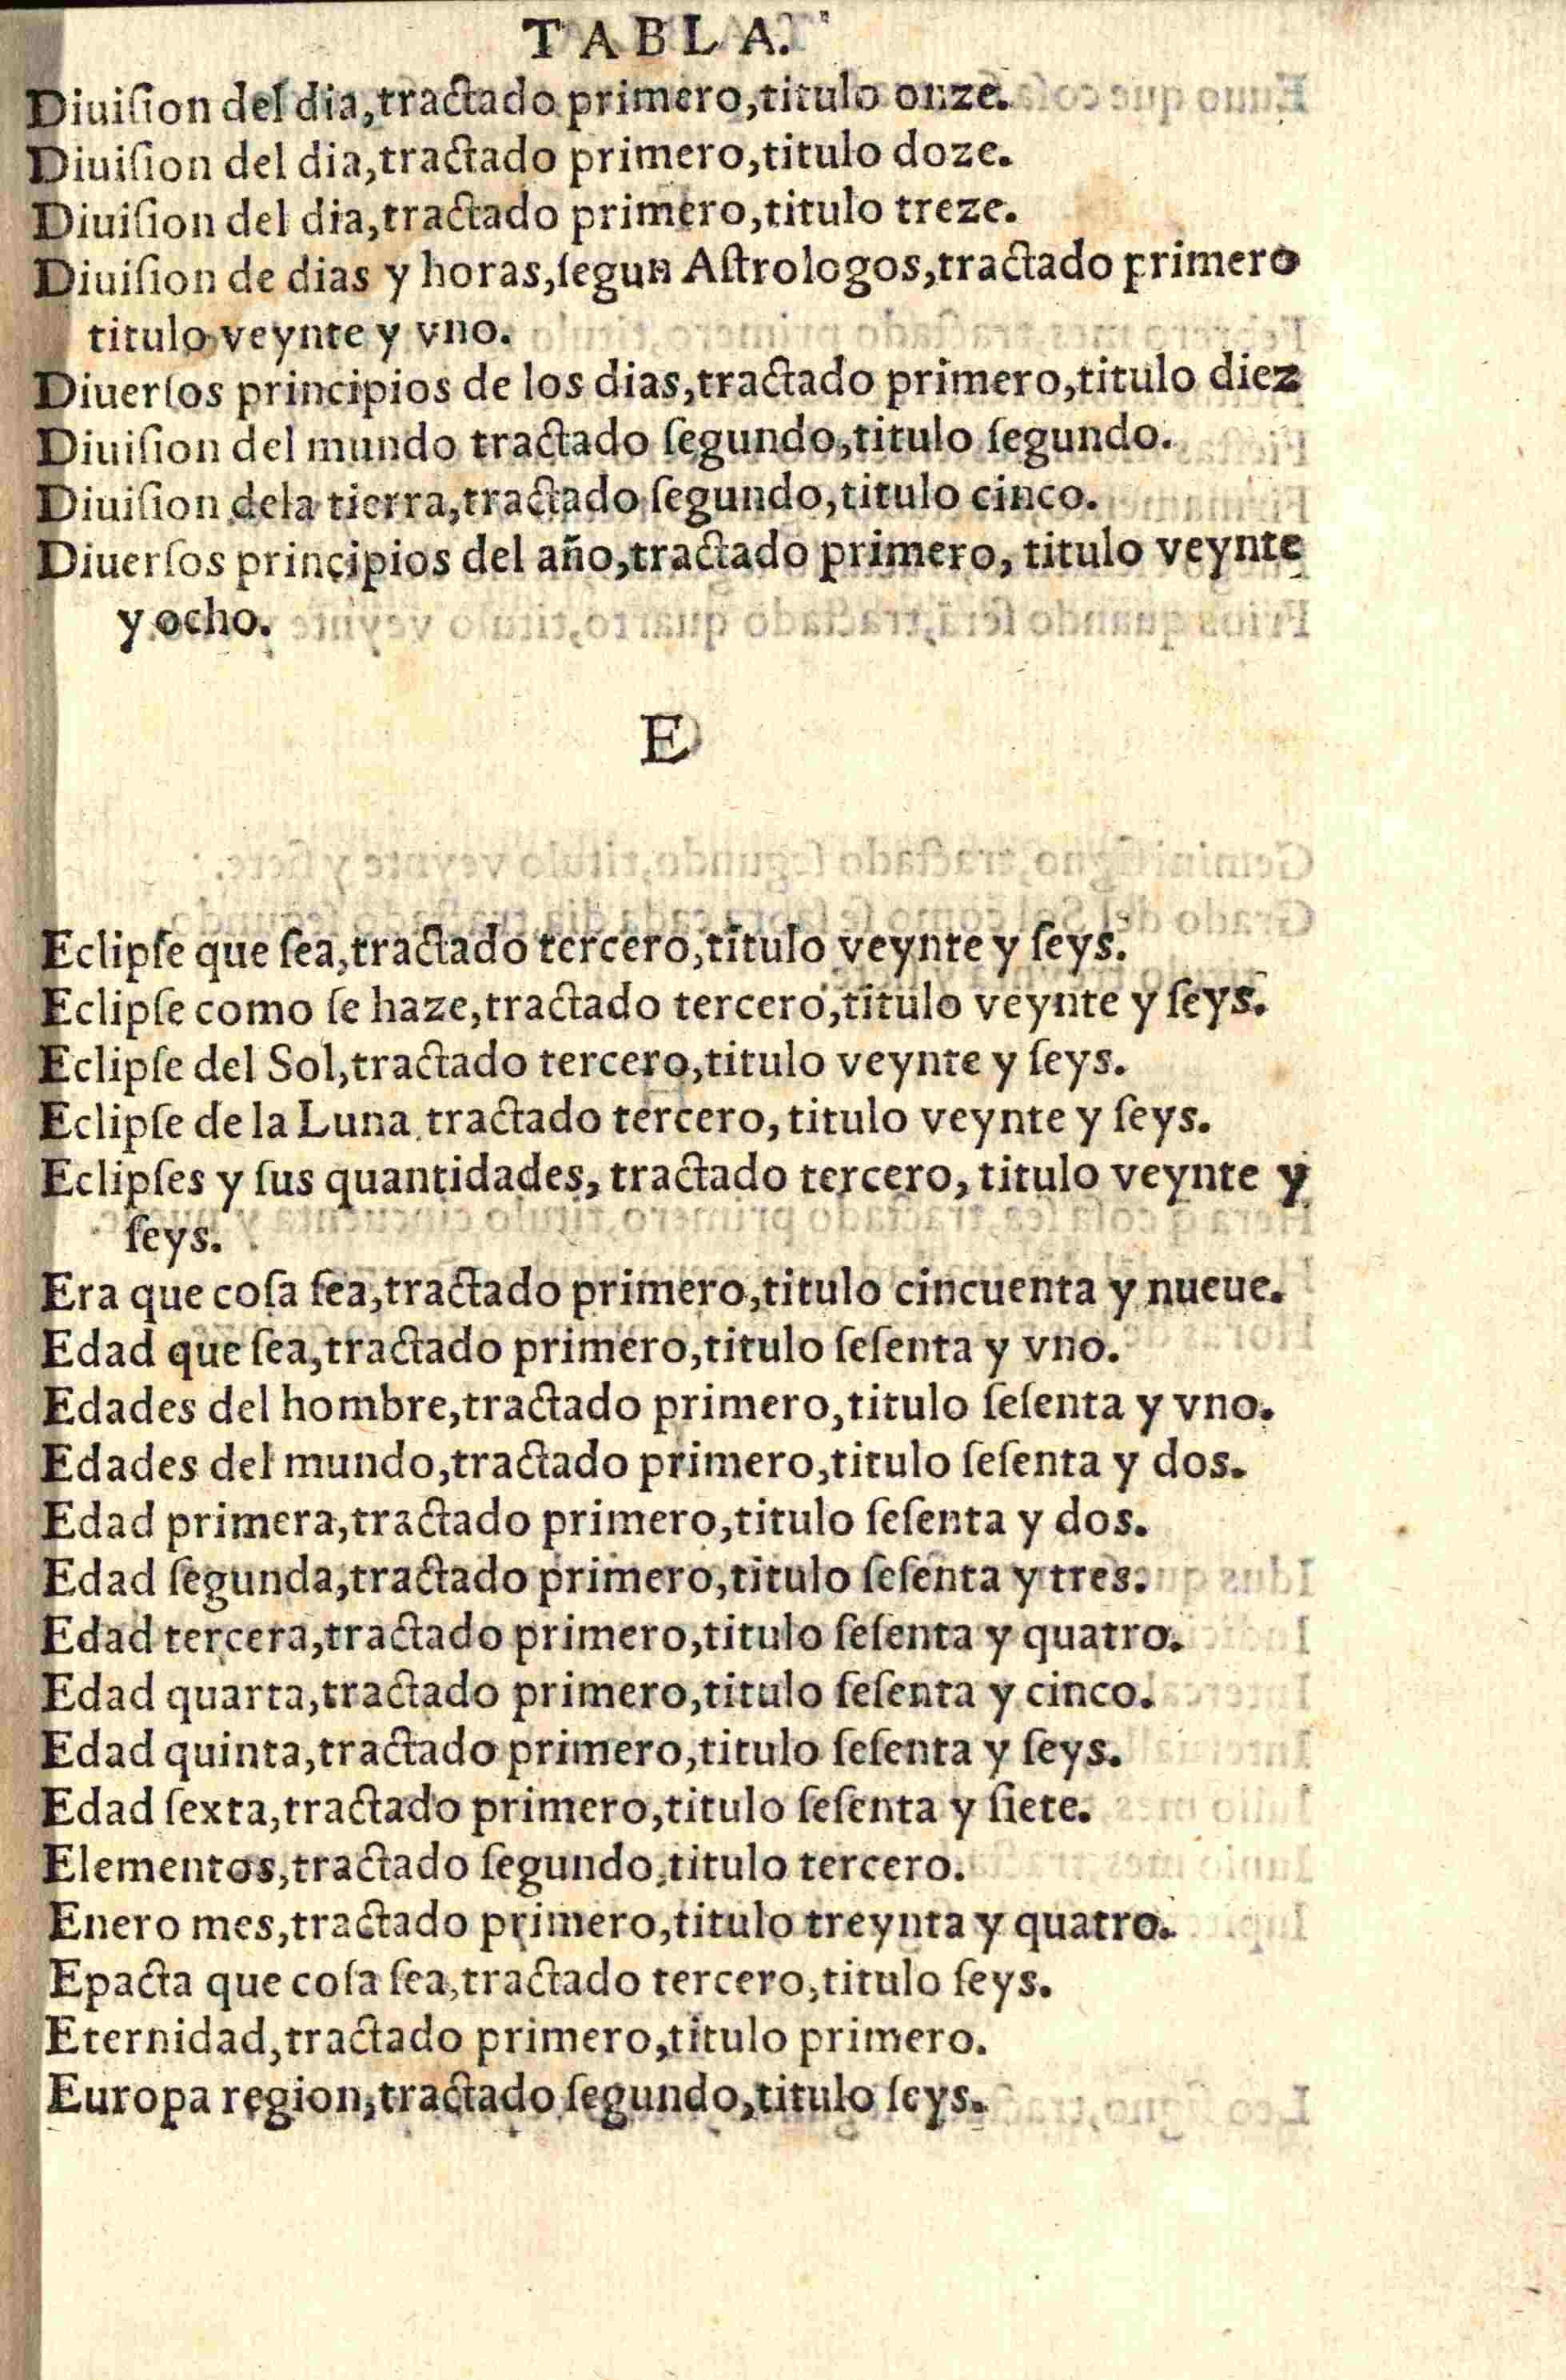 TABLA.
Diuiſion del dia,tractado primero,titulo onze.
Diuiſion del dia,tractado primero,titulo doze.
Diuiſion del dia,tractado primero,titulo treze.
Diuiſion de dias y horas,ſegun Aſtrologos,tractado primero
titulo veynte y vno.
Diuerſos principios de los dias,tractado primero,titulo diez
Diuiſion del mundo tractado ſegundo,titulo ſegundo.
Diuiſion dela tierra,tractado ſegundo,titulo cinco.
Diuerſos principios del año,tractado primero, titulo veynte
y ocho.
E
Eclipſe que ſea,tractado tercero,titulo veynte y ſeys.
Eclipſe como ſe haze,tractado tercero,titulo veynte y ſeys.
Eclipſe del Sol,tractado tercero,titulo veynte y ſeys.
Eclipſe de la Luna tractado tercero, titulo veynte y ſeys.
Eclipſes y ſus quantidades, tractado tercero, titulo veynte y
ſeys.
Era que coſa ſea,tractado primero,titulo cincuenta y nueue.
Edad que ſea,tractado primero,titulo ſeſenta y vno.
Edades del hombre,tractado primero,titulo ſeſenta y vno.
Edades del mundo,tractado primero,titulo ſeſenta y dos.
Edad primera,tractado primero,titulo ſeſenta y dos.
Edad ſegunda,tractado primero,titulo ſeſenta y tres.
Edad tercera,tractado primero,titulo ſeſenta y quatro.
Edad quarta,tractado primero,titulo ſeſenta y cinco.
Edad quinta,tractado primero,titulo ſeſenta y ſeys.
Edad ſexta,tractado primero,titulo ſeſenta y ſiete.
Elementos,tractado ſegundo,titulo tercero.
Enero mes,tractado primero,titulo treynta y quatro.
Epacta que coſa ſea,tractado tercero,titulo ſeys.
Eternidad,tractado primero,titulo primero.
Europa region,tractado ſegundo,titulo ſeys.